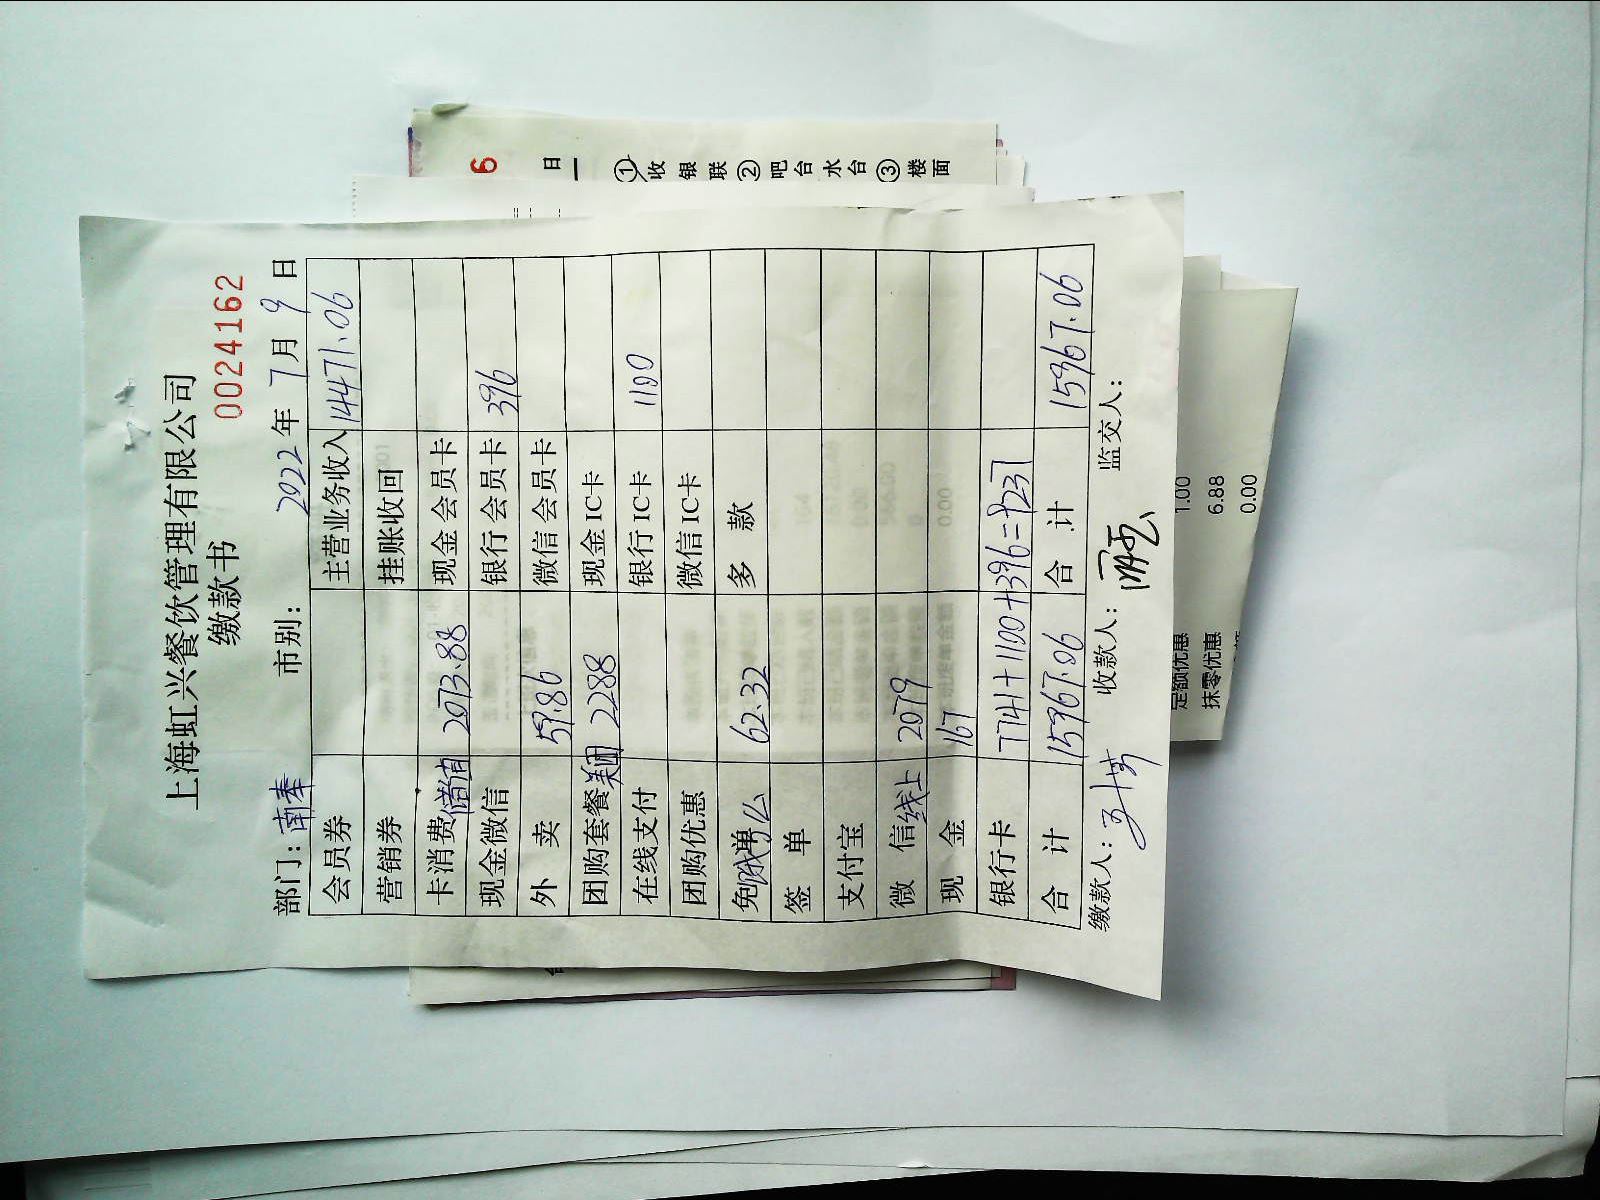 上海虹兴餐饮管理有限公司
缴款书
0024162
部门：南奉 市别： 2022年7月9日
会员券 主营业务收入 14471.06
营销券 挂账收回
卡消费储值 2073.88 现金会员卡
现金微信 银行会员卡 396
外卖 59.86 微信会员卡
团购套餐美团 2288 现金IC卡
在线支付 银行IC卡 1100
团购优惠 微信IC卡
免单饿了么 62.32 多款
签单
支付宝
微信线上 2079
现金 167
银行卡 7741+1100+396=9237
合计 15967.06 合计 15967.06
缴款人： 收款人： 监交人：
6
日
①收银联②吧台水台③楼面
定额优惠 1.00
抹零优惠 6.88
0.00